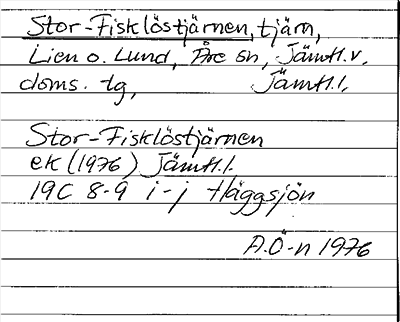 Stor-Fisklöstjärnen, tjärn,
Lien o. Lund, Åre sn, Jämtl. v.
doms. tg, Jämtl. l.
Stor-Fisklöstjärnen
ek (1976) Jämtl. l.
19C 8-9 i-j Häggsjön
A.Ö-n 1976